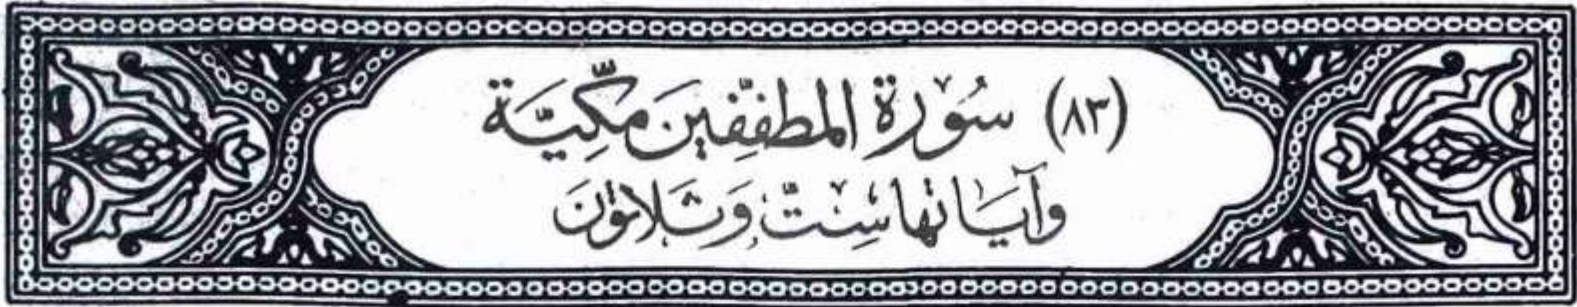 (٨٣) سُورَة المطفِّفِينَ مَكِّيَّة
وَآيَاتها سِتٌّ وَثَلاثون